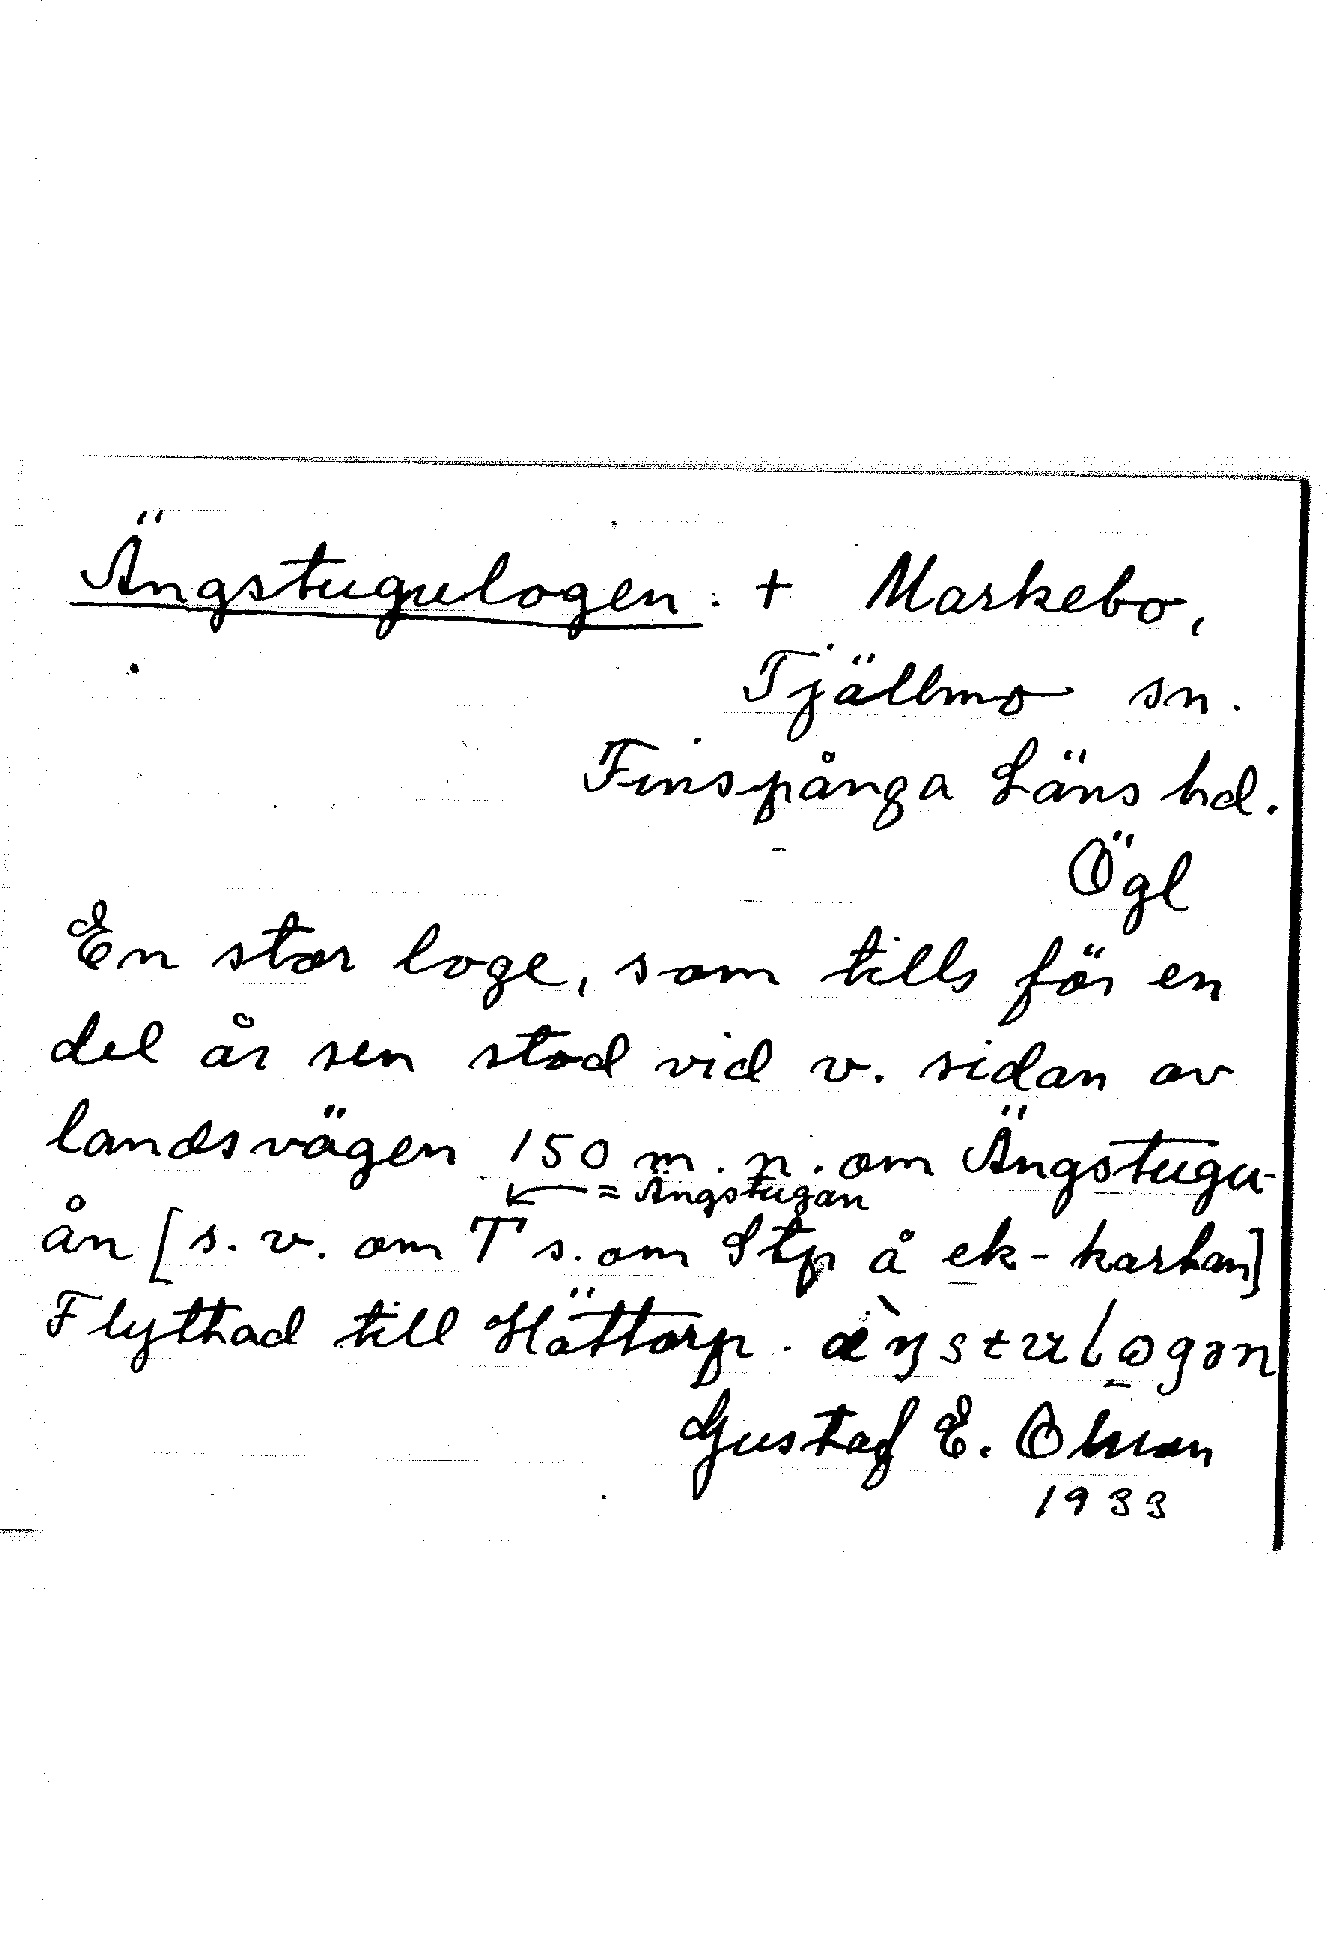 Ängstugulogen. + Markebo,
Tjällmo sn.
Finspånga Läns hd.
Ögl
En stor loge, som tills för en
del år sen stod vid v. sidan av
landsvägen 150 m. n. om Ängstugu-
= Ängstugan
ån [s. v. om T s. om Stp å ek-kartan]
Flyttad till Hättorp.
Gustaf E. Olsson
1933